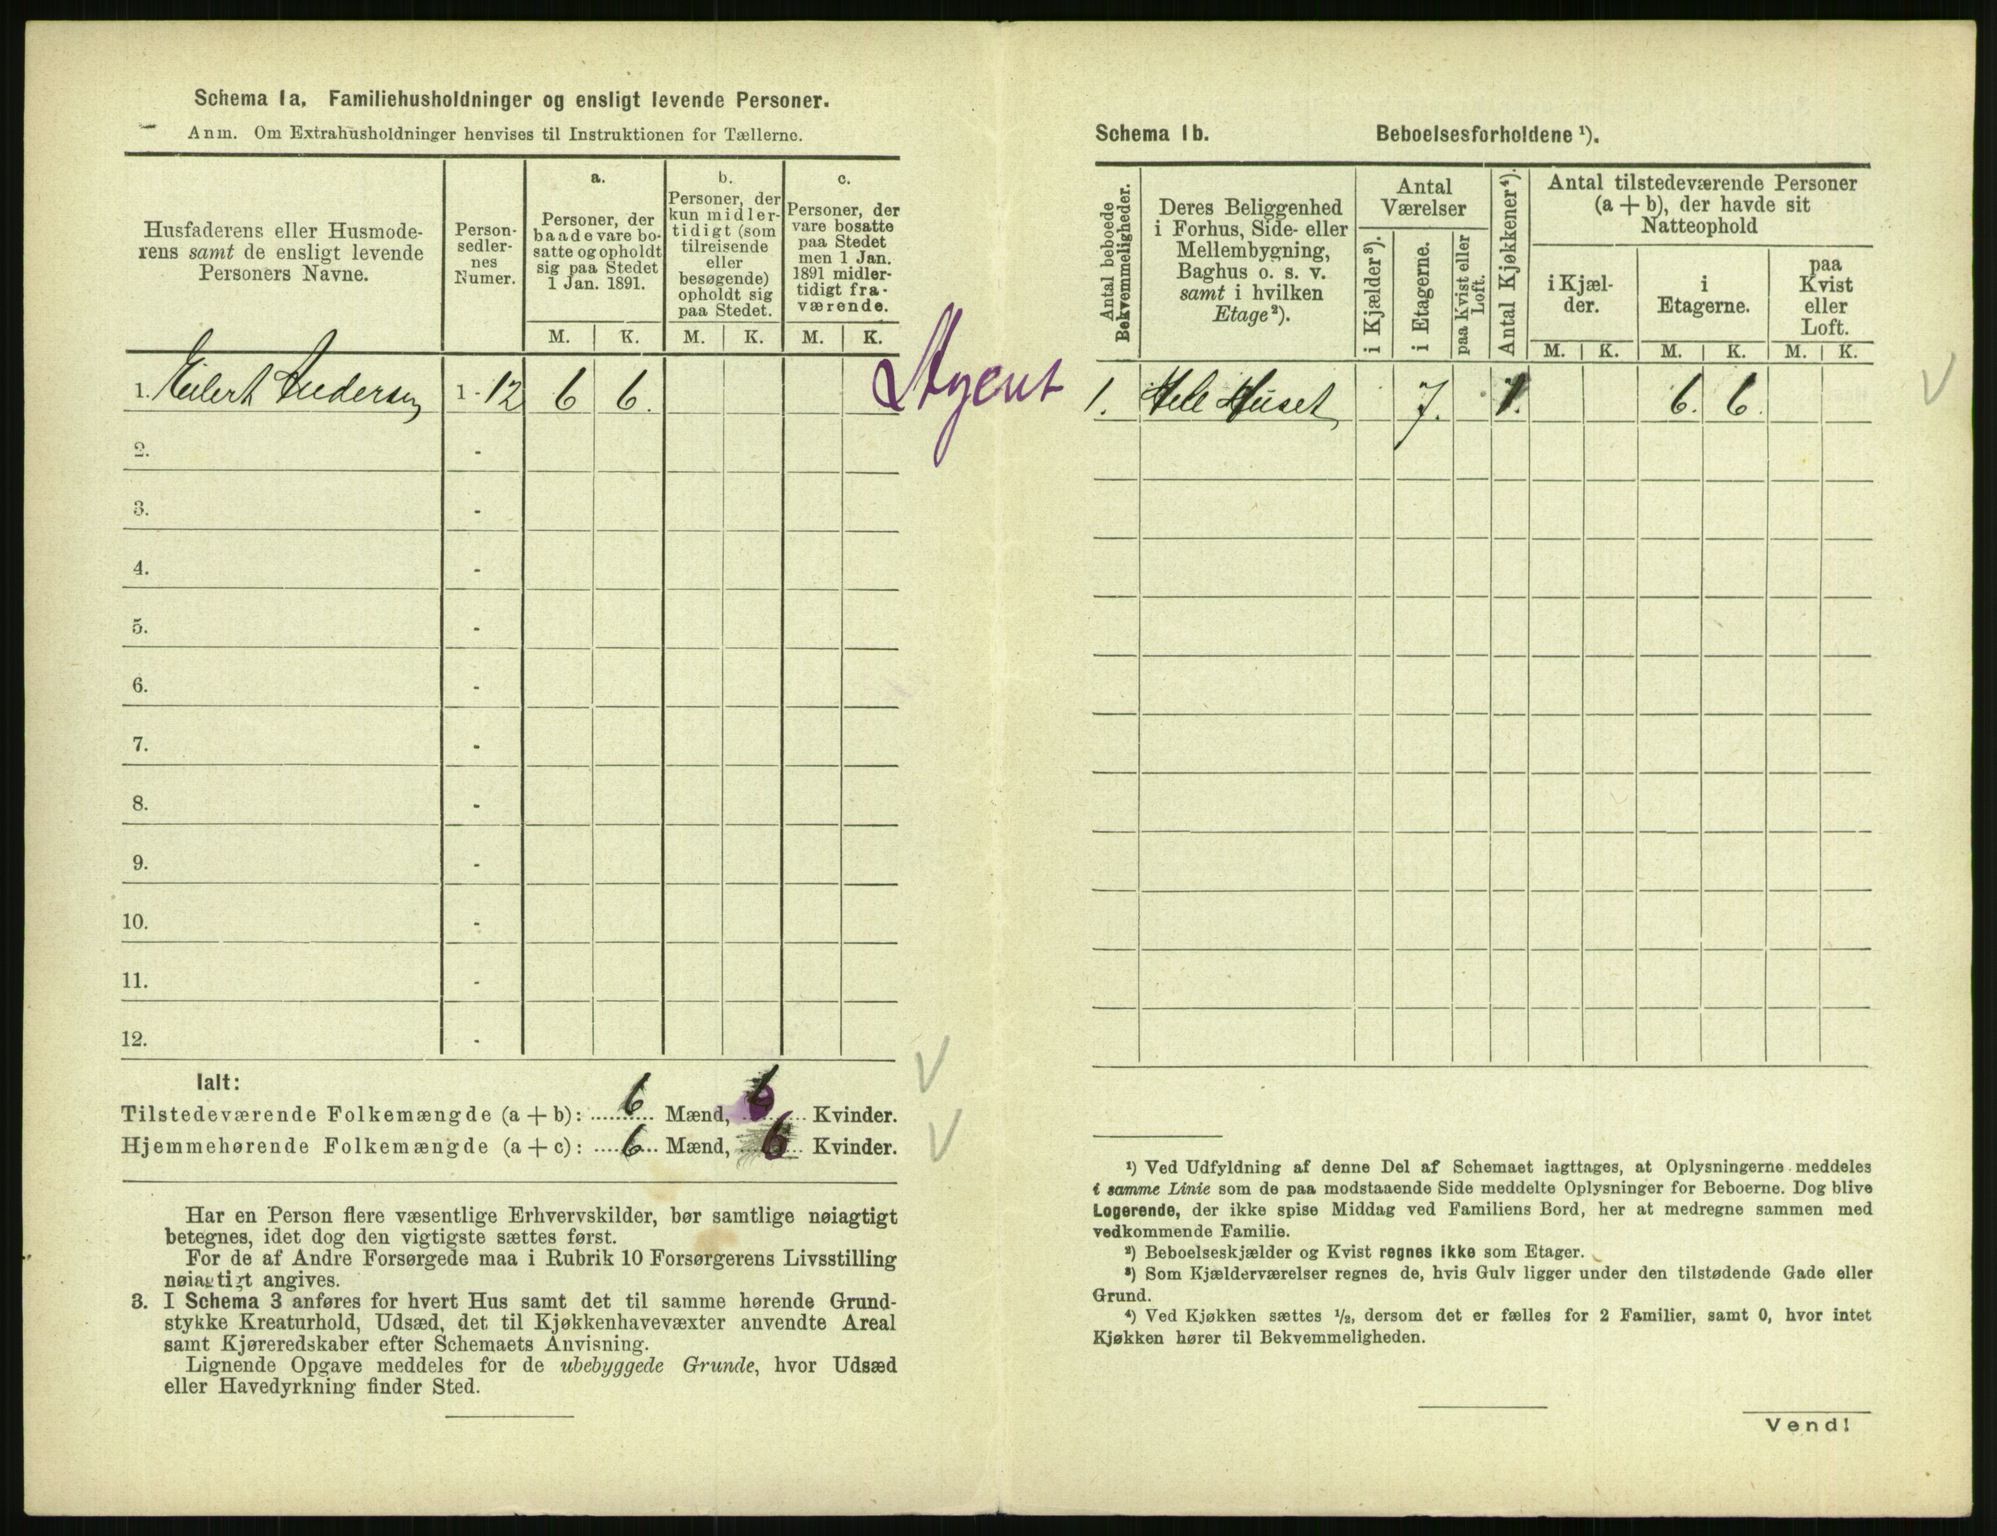 Schema 1a. Familiehusholdninger og ensligt levende Personer.
Anm. Om Extrahusholdninger henvises til Instruktionen for Tællerne.
Husfaderens eller Husmode-
rens samt de ensligt levende
Personers Navne.
Person-
sedler-
nes
Numer.
a.
Personer, der
baade vare bo-
satte og opholdt
sig paa Stedet
1 Jan. 1891.
b.
Personer, der
kun midler-
tidigt (som
tilreisende
eller
besøgende)
opholdt sig
paa Stedet.
c.
Personer, der
vare bosatte
paa Stedet
men 1 Jan.
1891 midler-
tidigt fra-
værende.
M. K. M. K. M. K.
1. Eilert Andersen 1 - 12 6 6. Agent
2. -
3. -
4. -
5. -
6. -
7. -
8. -
9. -
10. -
11. -
12. -
Ialt:
Tilstedeværende Folkemængde (a + b): 6 Mænd, 6 Kvinder.
Hjemmehørende Folkemængde (a + c): 6 Mænd, 6 Kvinder.
Har en Person flere væsentlige Erhvervskilder, bør samtlige nøiagtigt
betegnes, idet dog den vigtigste sættes først.
For de af Andre Forsørgede maa i Rubrik 10 Forsørgerens Livsstilling
nøiagtigt angives.
3. I Schema 3 anføres for hvert Hus samt det til samme hørende Grund-
stykke Kreaturhold, Udsæd, det til Kjøkkenhavevæxter anvendte Areal
samt Kjøreredskaber efter Schemaets Anvisning.
Lignende Opgave meddeles for de ubebyggede Grunde, hvor Udsæd
eller Havedyrkning finder Sted.
Schema 1b. Beboelsesforholdene ¹).
Antal beboede
Bekvemmeligheder.
Deres Beliggenhed
i Forhus, Side- eller
Mellembygning,
Baghus o. s. v.
samt i hvilken
Etage²).
Antal
Værelser
i Kjælder³).
i Etagerne.
paa Kvist eller
Loft.
Antal Kjøkkener⁴).
Antal tilstedeværende Personer
(a + b), der havde sit
Natteophold
i Kjæl-
der.
i
Etagerne.
paa
Kvist
eller
Loft.
M. K. M. K. M. K.
1. Hele Huset 7. 1. 6. 6.
¹) Ved Udfyldning af denne Del af Schemaet iagttages, at Oplysningerne meddeles
i samme Linie som de paa modstaaende Side meddelte Oplysninger for Beboerne. Dog blive
Logerende, der ikke spise Middag ved Familiens Bord, her at medregne sammen med
vedkommende Familie.
²) Beboelseskjælder og Kvist regnes ikke som Etager.
³) Som Kjælderværelser regnes de, hvis Gulv ligger under den tilstødende Gade eller
Grund.
⁴) Ved Kjøkken sættes ½, dersom det er fælles for 2 Familier, samt 0, hvor intet
Kjøkken hører til Bekvemmeligheden.
Vend!